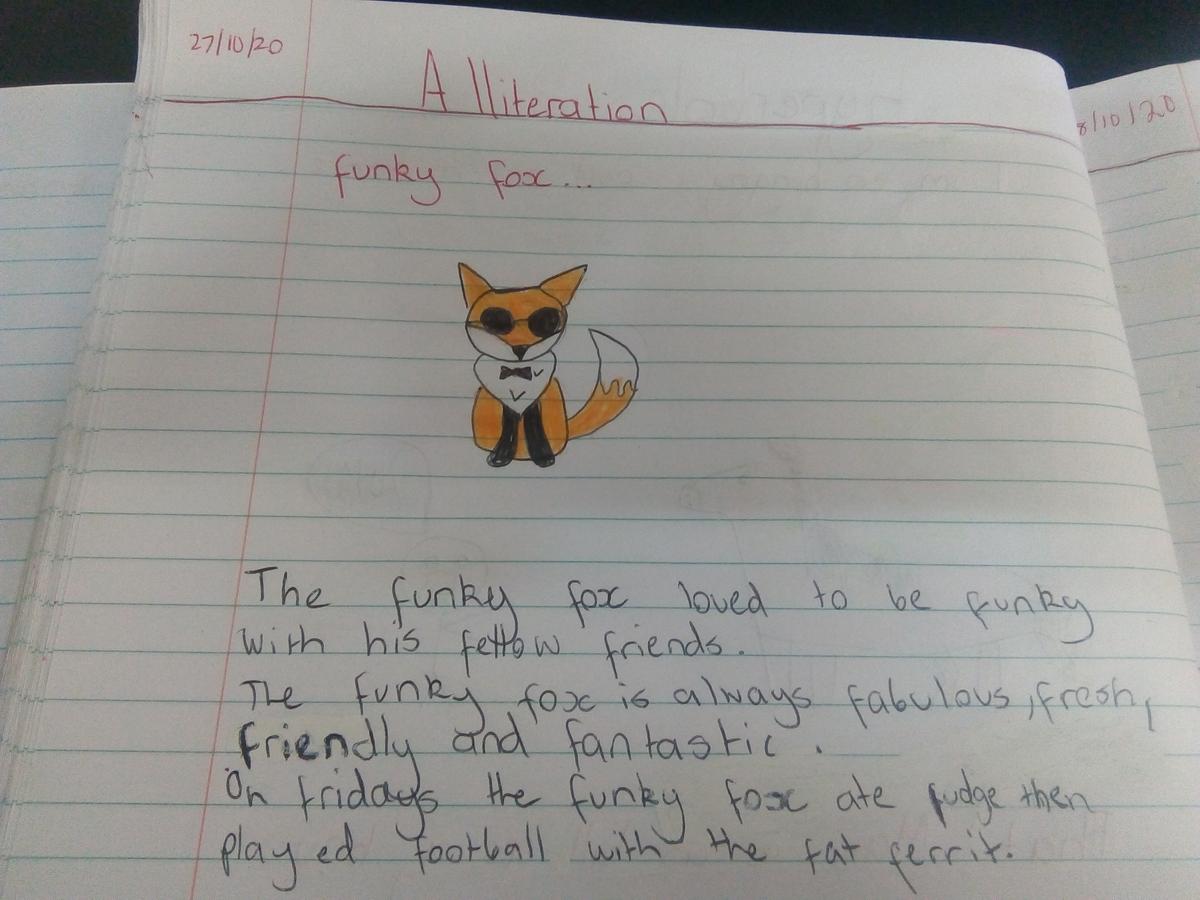 27/10/20
Alliteration
8/10/20
funky fox...
The funky fox loved to be funky
with his fellow friends.
The funky fox is always fabulous, fresh,
friendly and fantastic.
On fridays the funky fox ate fudge then
played football with the fat ferrit.